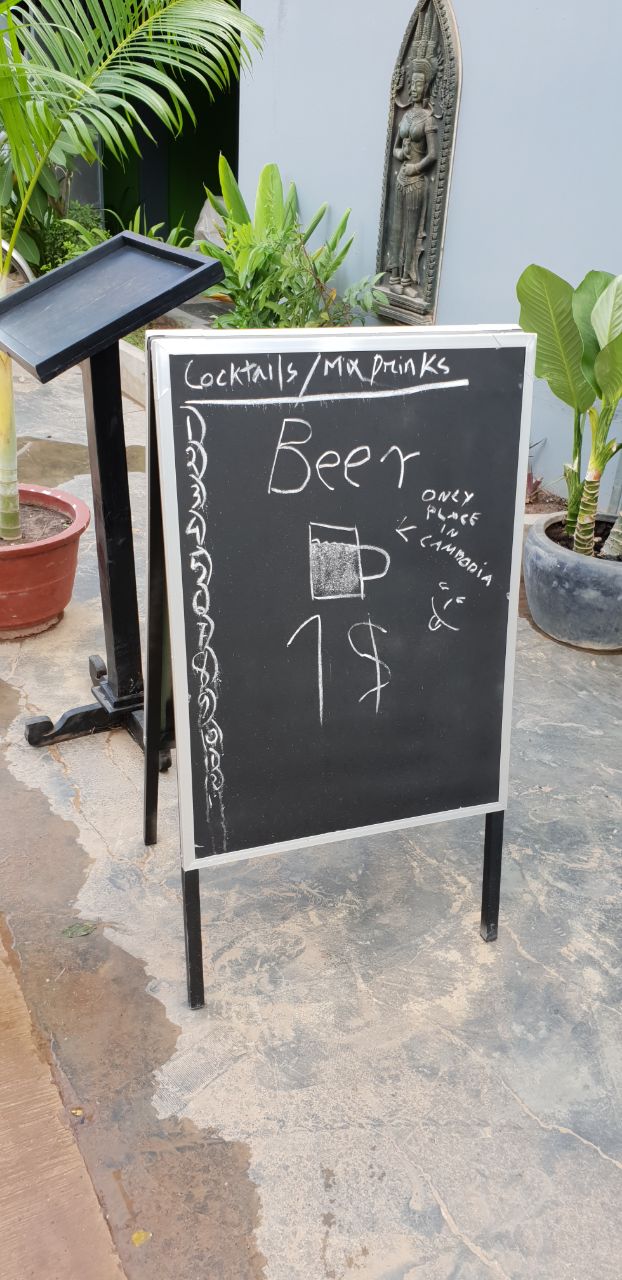 Cocktails/Mix Drinks
Beer
ONLY
PLACE
IN
CAMBODIA
1 $